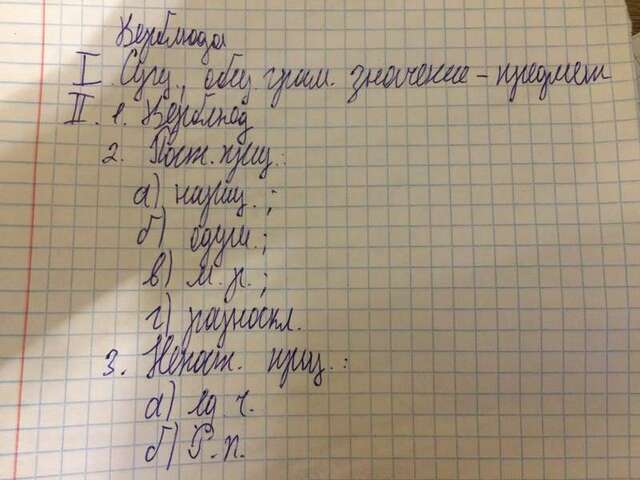 Верблюда
I. Сущ., общ. грам. значение - предмет
II. 1. Верблюд
2. Пост. призн.:
а) нариц.;
б) одуш.;
в) м. р.;
г) разноскл.
3. Непост. призн.:
а) ед. ч.
б) Р. п.